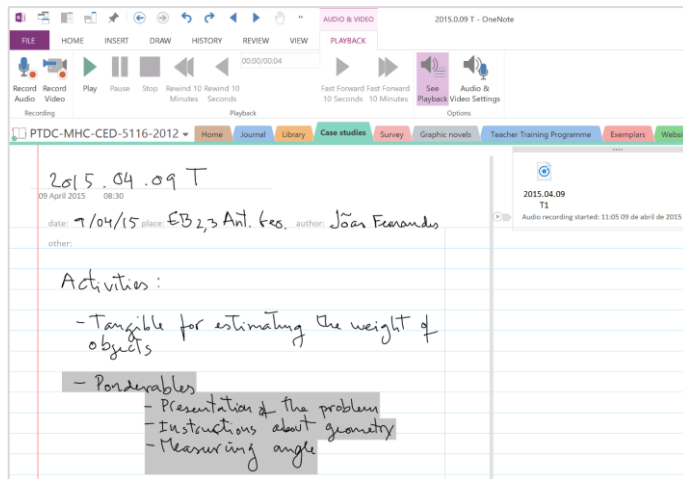 AUDIO & VIDEO
2015.0.09 T - OneNote
FILE HOME INSERT DRAW HISTORY REVIEW VIEW PLAYBACK
00:00/00:04
Record Audio
Record Video
Play
Pause
Stop
Rewind 10 Minutes
Rewind 10 Seconds
Fast Forward 10 Seconds
Fast Forward 10 Minutes
See Playback
Audio & Video Settings
Recording Playback Options
PTDC-MHC-CED-5116-2012 Home Journal Library Case studies Survey Graphic novels Teacher Training Programme Exemplars Websi
2015.04.09 T
09 April 2015 08:30
date: 9/04/15 place: EB 2,3 Ant. author: João Fernandes
other:
Activities:
- Tangible for estimating the weight of
objects
- Ponderables
- Presentation of the problem
- Instructions about geometry
- Measuring angle
2015.04.09
T1
Audio recording started: 11:05 09 de abril de 2015